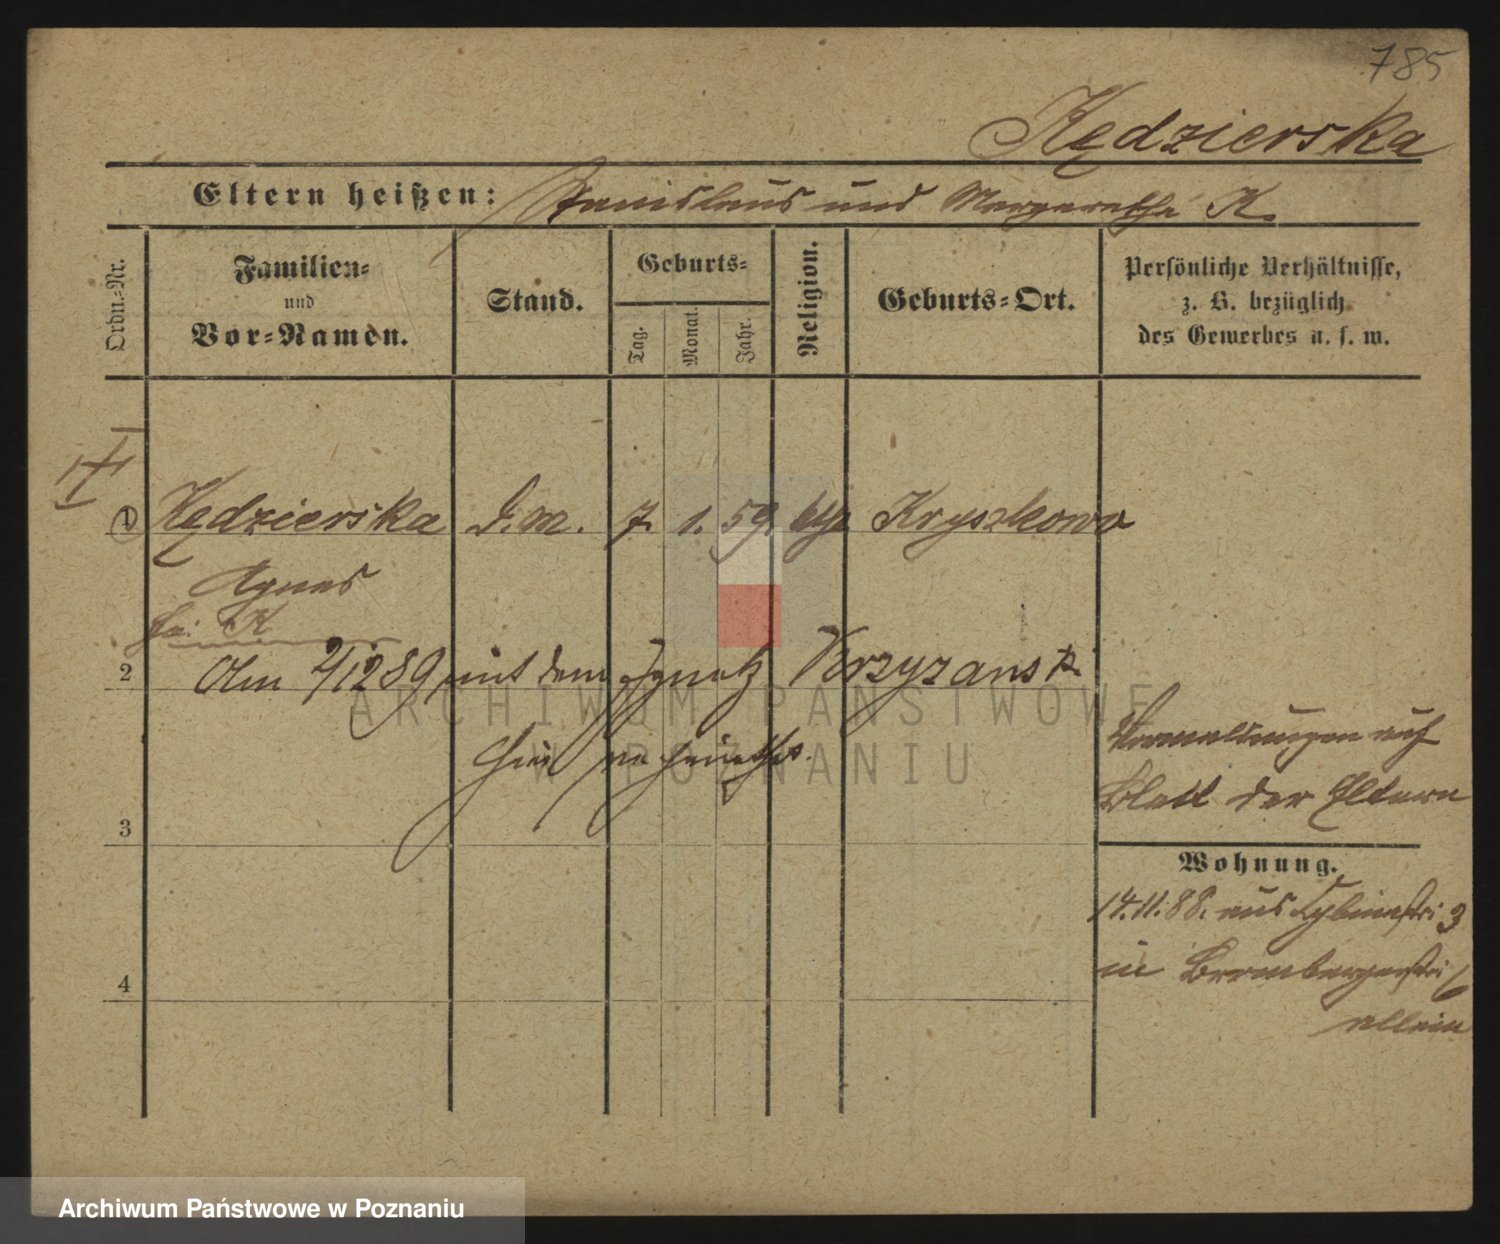 785
Kędzierska
Eltern heißen: Stanislaus und Margarethe K.
Ordn.-Nr.
Familien-
und
Vor-Namen.
Stand.
Geburts-
Tag.
Monat.
Jahr.
Religion.
Geburts-Ort.
Persönliche Verhältnisse,
z. B. bezüglich
des Gewerbes u. s. w.
1 Kędzierska D.M. 7. 1. 59. kth Kryszkowo
Agnes
K
2 Am 2/12 89 mit dem Ignatz Krzyzanski
hier verheirathet.
ARCHIWUM PAŃSTWOWE
W POZNANIU
Vermeldungen auf
Blatt der Eltern
3
Wohnung.
14.11.88. aus 3
in Brombergerstr. 6
allein
4
Archiwum Państwowe w Poznaniu